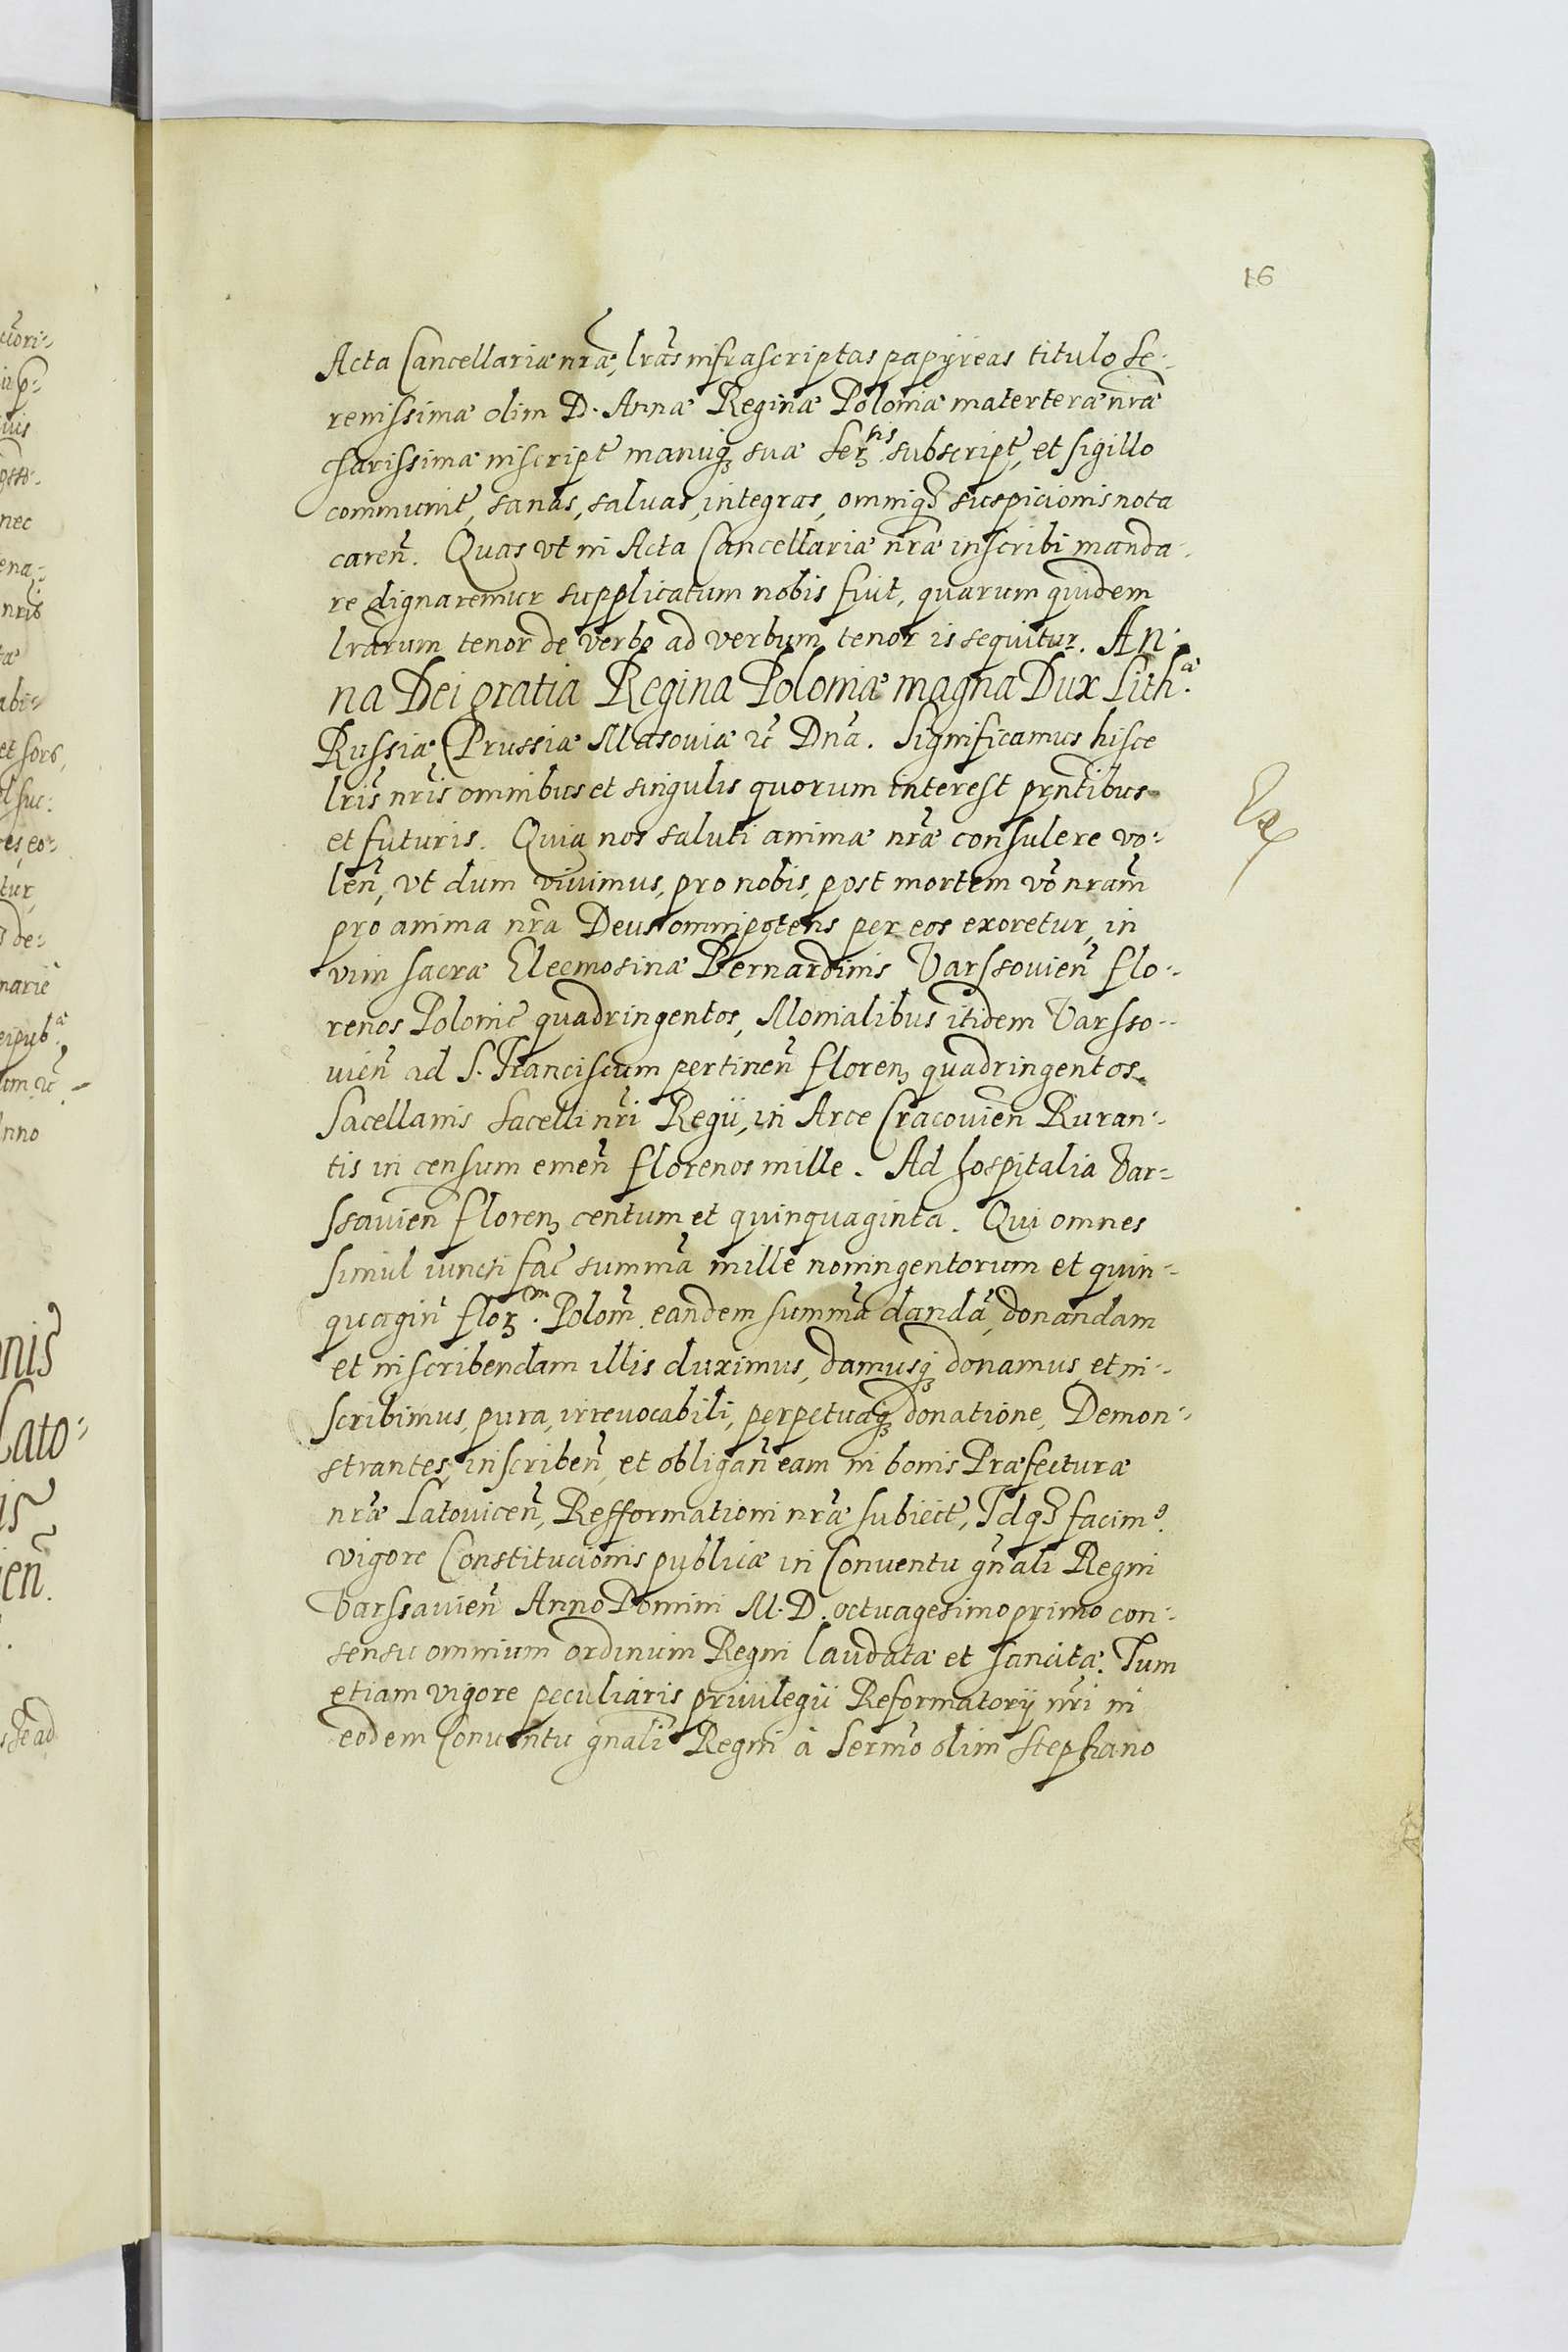 16
Acta Cancellariæ nr̃æ, lrãs infrascriptas papyreas titulo Se-
renissimæ olim D. Annæ Reginæ Poloniæ materteræ nr̃æ
charissimæ inscript̃ manuq3 suæ Serꝫ^tis subscript̃, et sigillo
communit̃, sanas, saluas, integras, omniq3 suspicionis nota
careñ. Quas vt in Acta Cancellariæ nr̃æ inscribi manda-
re dignaremur supplicatum nobis fuit, quarum quidem
lrãrum tenor de verbo ad verbum tenor is sequitur. An-
na Dei gratia Regina Poloniæ magna Dux Lith^æ.
Russiæ, Prussiæ Masouiæ ec̃ Dnã. Significamus hisce
lrĩs nrĩs omnibus et singulis quorum interest pr̃ntibus
et futuris. Quia nos saluti animæ nr̃æ consulere vo-
leñ, vt dum viuimus, pro nobis, post mortem võ nrãm
pro anima nrã Deus omnipotens per eos exoretur, in
vim sacræ Eleemosinæ Bernardinis Varssouieñ flo-
renos Polonic̃ quadringentos, Monialibus itidem Varsso-
uieñ ad S. Franciscum pertineñ florenꝫ quadringentos.
Sacellanis sacelli nrĩ Regii, in Arce Cracouieñ Ruran-
tis in censum emeñ florenos mille. Ad hospitalia Var-
ssauieñ florenꝫ centum et quinquaginta. Qui omnes
simul iuncti fac̃ summã mille noningentorum et quin-
quagin̄ florꝫ^m. Polom̃ eandem summã dandã, donandam
et inscribendam illis duximus, damusq3 donamus, et in-
scribimus, pura, irreuocabili, perpetuaq3 donatione, Demon-
strantes, inscribeñ, et obligañ eam in bonis Præfecturæ
nr̃æ Latouiceñ, Refformationi nr̃æ subiect̃, Idq3 facim9
vigore Constitucionis publicæ in Conuentu gñali Regni
Varssauieñ Anno Domini M. D. octuagesimo primo con-
sensu omnium ordinum Regni laudatæ et sancitæ. Tum
etiam vigore peculiaris priuilegii Reformatorij nrĩ in
eodem Conuentu gñali Regni à Sermõ olim Stephano